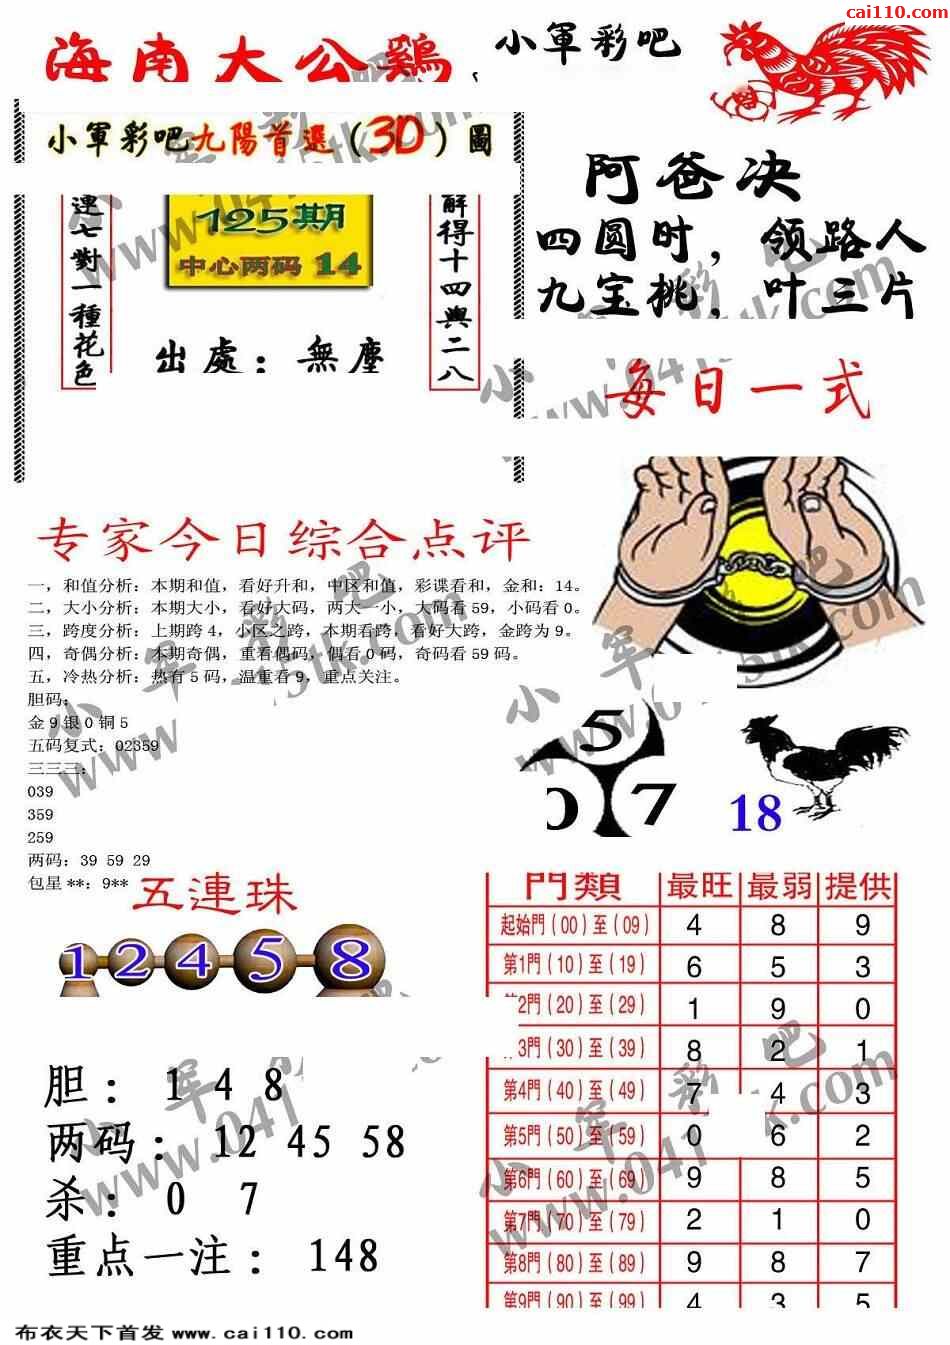 cai110.com
海南大公鷄
小軍彩吧
小軍彩吧九陽首選(3D)圖
連七對一種花色
125期
中心两码 14
解得十四與二八
出處：無塵
阿爸决
四圆时，领路人
九宝桃，叶三片
每日一式
专家今日综合点评
一，和值分析：本期和值，看好升和，中区和值，彩谍看和，金和：14。
二，大小分析：本期大小，看好大码，两大一小，大码看59，小码看0。
三，跨度分析：上期跨4，小区之跨，本期看跨，看好大跨，金跨为9。
四，奇偶分析：本期奇偶，重看偶码，偶看0码，奇码看59码。
五，冷热分析：热有5码，温重看9，重点关注。
胆码：
金9银0铜5
五码复式：02359
三三三：
039
359
259
两码：39 59 29
包星**：9**
5
0 7
18
五連珠
1 2 4 5 8
胆： 1 4 8
两码： 12 45 58
杀： 0 7
重点一注： 148
門類 最旺 最弱 提供
起始門(00)至(09) 4 8 9
第1門(10)至(19) 6 5 3
第2門(20)至(29) 1 9 0
第3門(30)至(39) 8 2 1
第4門(40)至(49) 7 4 3
第5門(50)至(59) 0 6 2
第6門(60)至(69) 9 8 5
第7門(70)至(79) 2 1 0
第8門(80)至(89) 9 8 7
第9門(90)至(99) 4 3 5
布衣天下首发 www.cai110.com